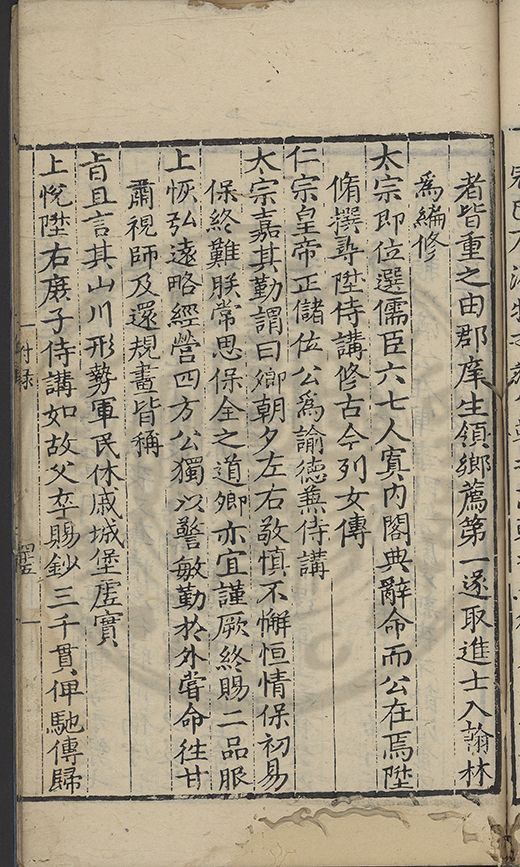 者皆重之由郡庠生領鄉薦第一遂取進士入翰林
為編修
太宗即位選儒臣六七人寘內閣典辭命而公在焉陞
脩撰尋陞侍講修古今列女傳
仁宗皇帝正儲位公為諭德兼侍講
太宗嘉其勤謂曰卿朝夕左右敬慎不懈恒情保初易
保終難朕常思保全之道卿亦宜謹厥終賜二品服
上恢弘遠略經營四方公獨以警敏勤於外嘗命徃甘
肅視師及還規畫皆稱
旨且言其山川形勢軍民休戚城堡虛實
上悅陞右庶子侍講如故父卒賜鈔三千貫俾馳傳歸
附錄